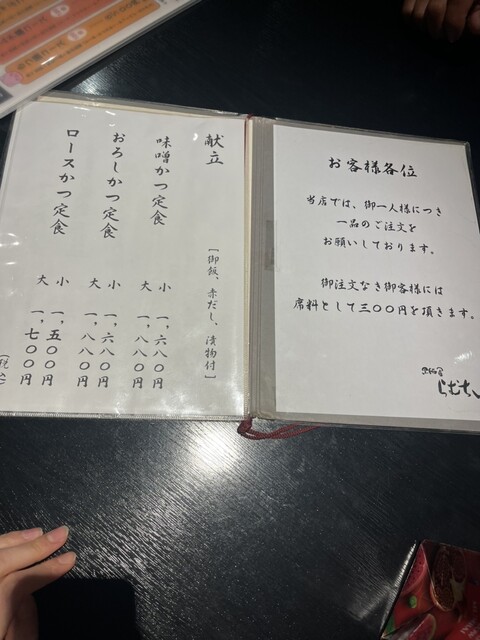 お客様各位
当店では、御一人様につき
一品のご注文を
お願いしております。
御注文なき御客様には
席料として三〇〇円を頂きます。
献立
[御飯、赤だし、漬物付]
味噌かつ定食
小 一、六八〇円
大 一、八八〇円
おろしかつ定食
小 一、六八〇円
大 一、八八〇円
ロースかつ定食
小 一、五〇〇円
大 一、七〇〇円